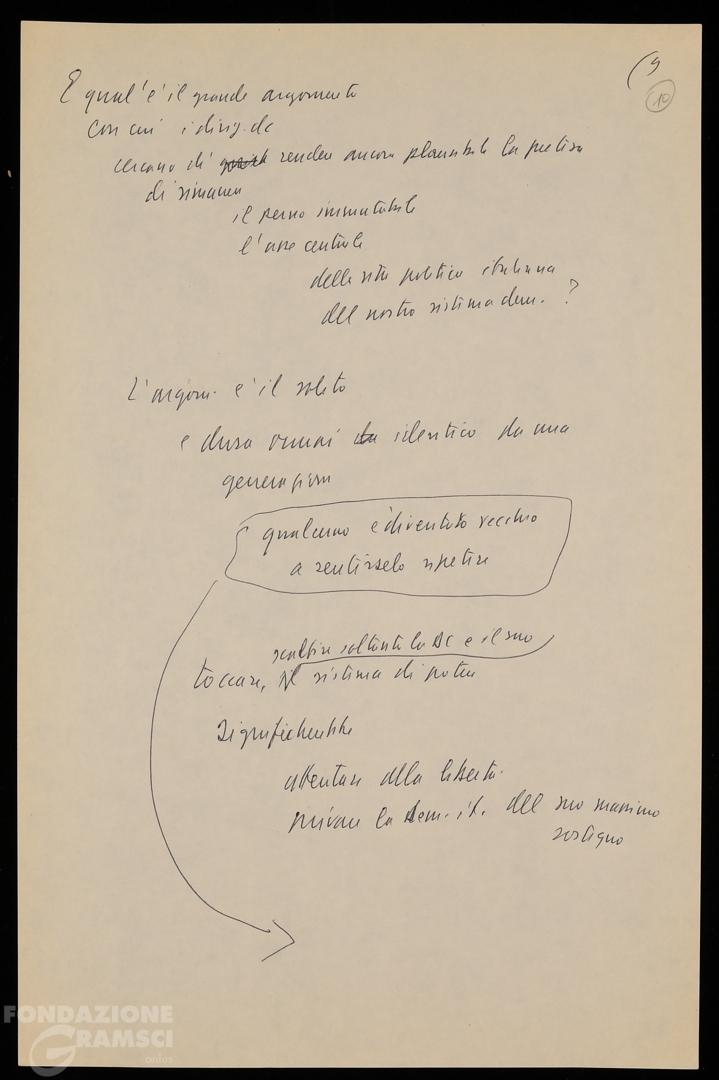 (9
10
E qual'è il grande argomento
con cui i dirig. dc
cercano di rendere ancora plausibile la pretesa
di rimanere
il perno immutabile
l'asse centrale
della vita politica italiana
del nostro sistema dem. ?
L'argom. è il solito
e dura ormai identico da una
generazione
qualcuno è diventato vecchio
a sentirselo ripetere
scalfire soltanto la DC e il suo
toccare, sistema di potere
Significherebbe
attentare alla libertà.
privare la Dem. it. del suo massimo
sostegno
FONDAZIONE
GRAMSCI
onlus